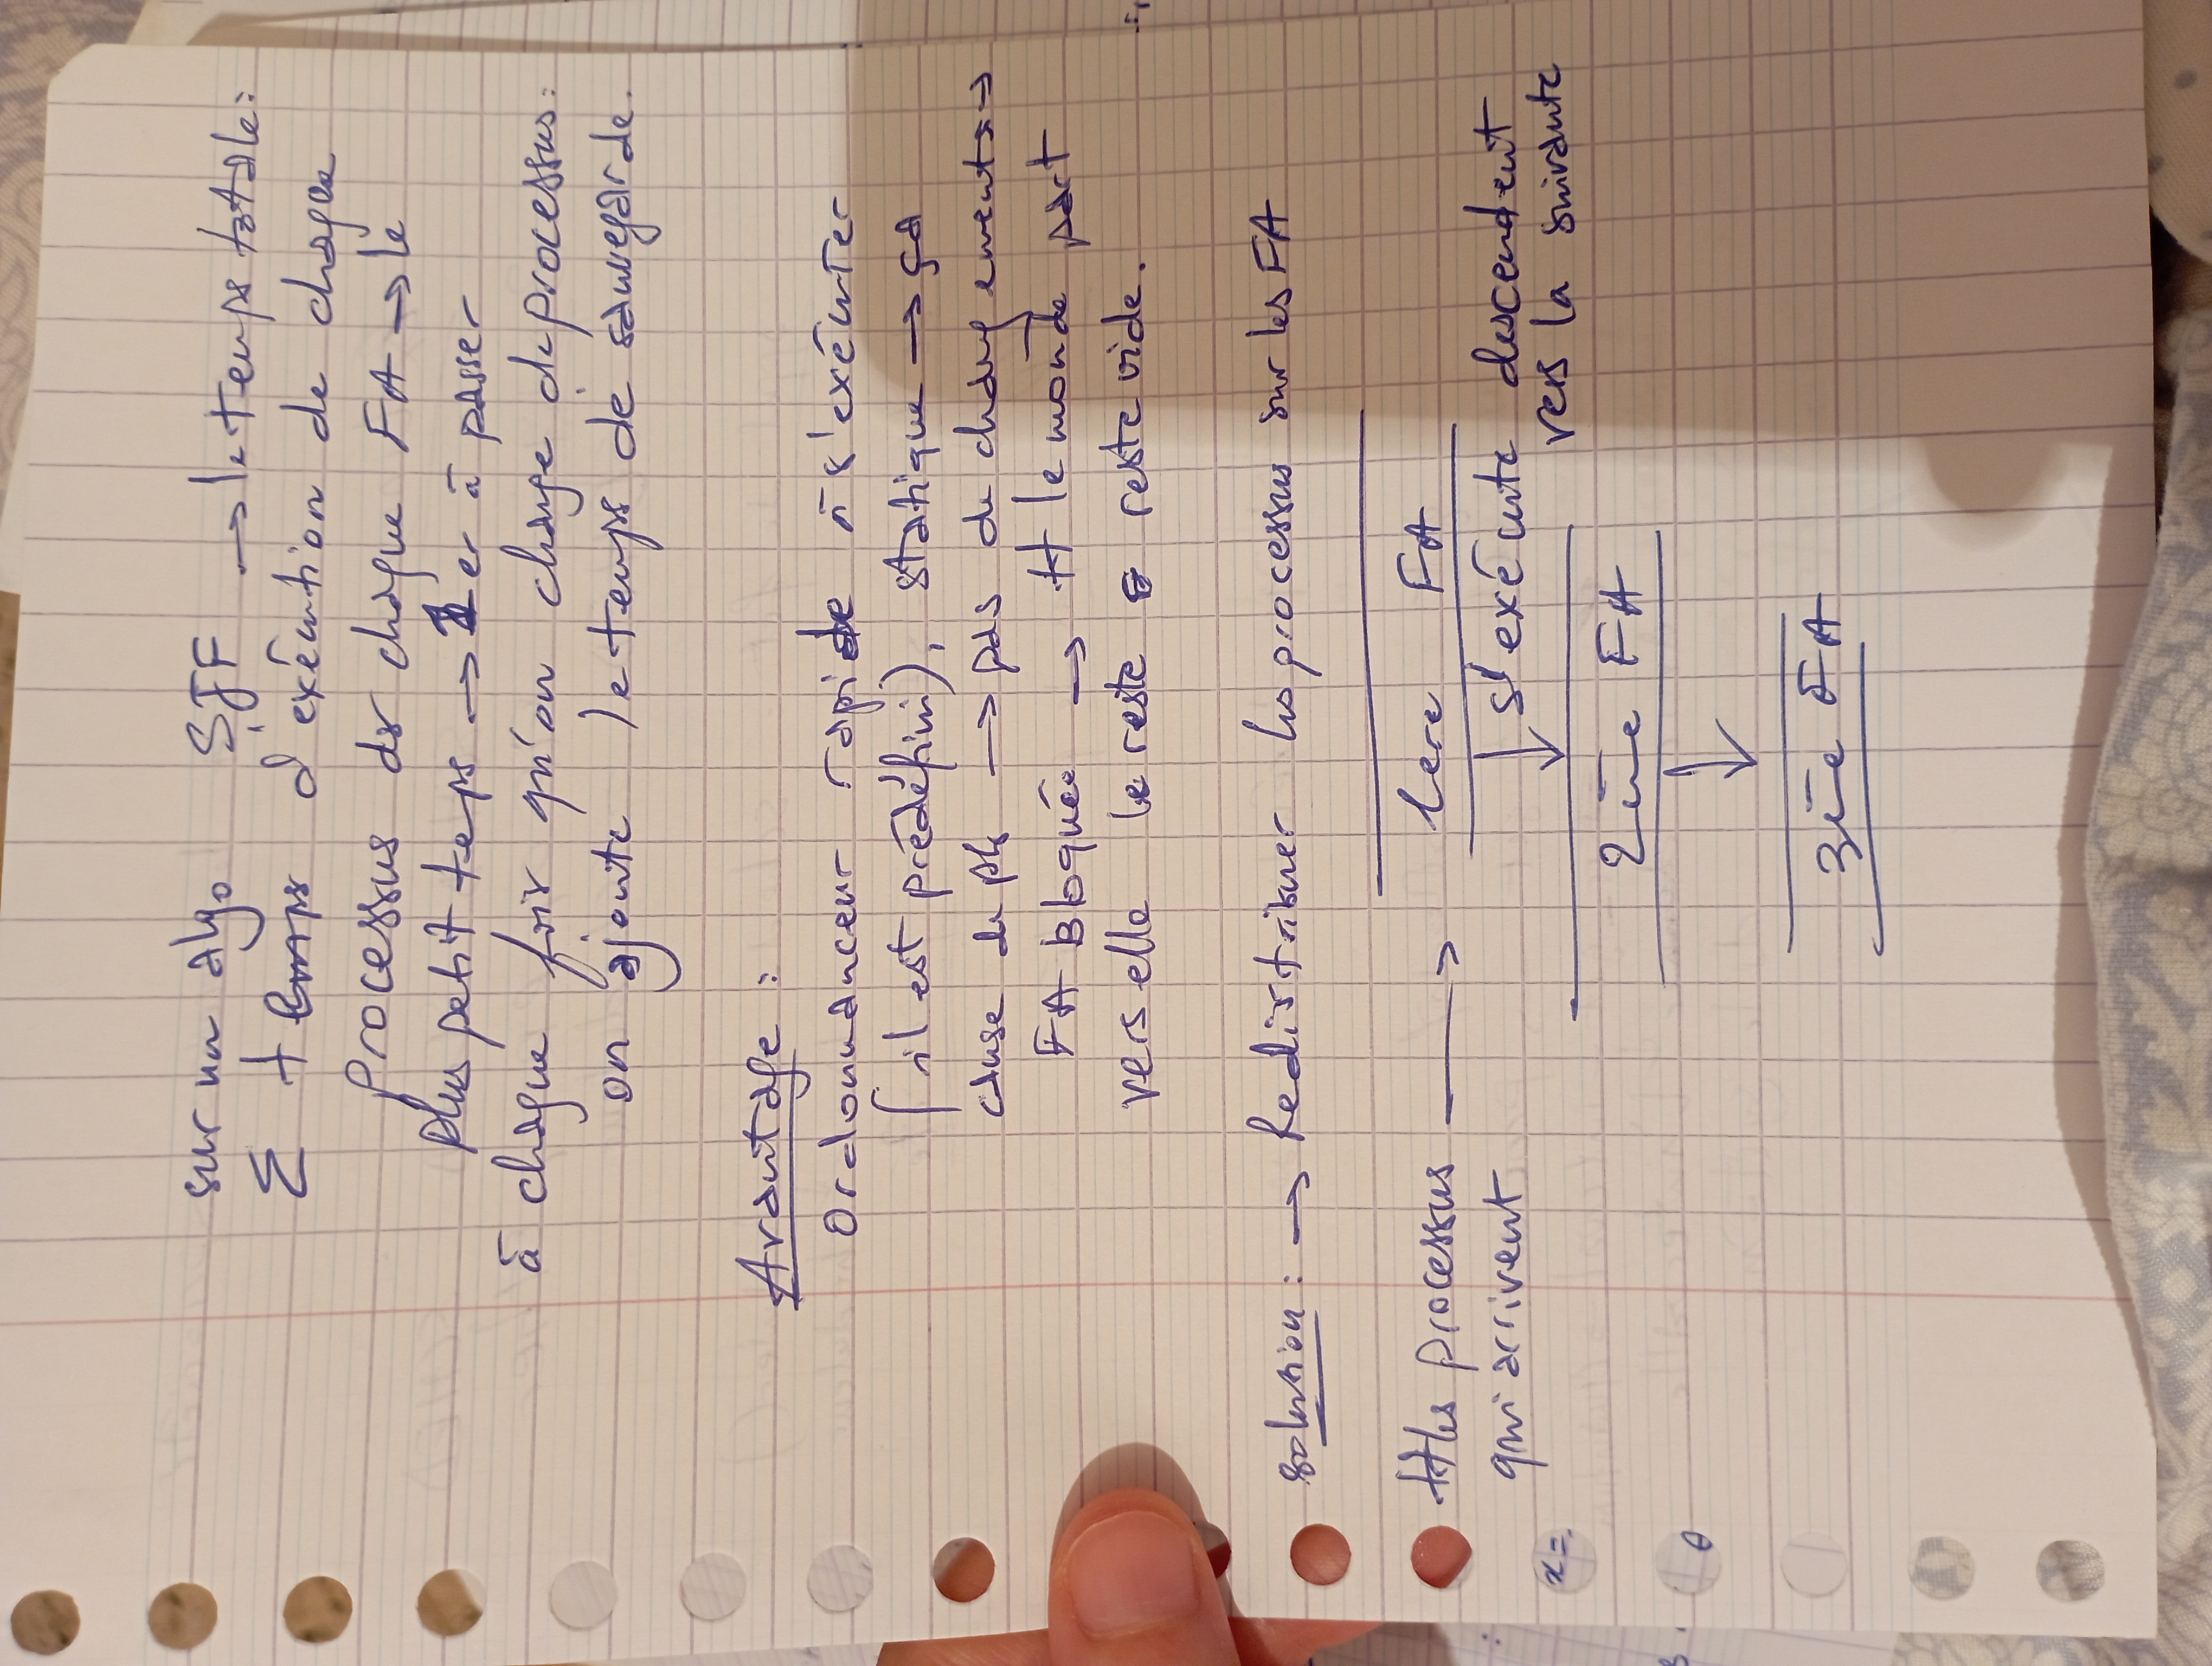 sur un algo SJF → le temps totale :
Σ temps d'exécution de chaque
processus ds chaque FA → le
plus petit temps → 1er à passer
à chaque fois qu'on change de processus :
on ajoute le temps de sauvegarde.
Avantage :
Ordonnanceur rapide à s'exécuter
(il est prédéfini), statique → ça
cause de pb → pas de changements →
FA Bloquée → tt le monde part
vers elle le reste reste vide.
solution : → Redistribuer les processus sur les FA
tt les processus → 1ere FA
qui arrivent
s'exécute descendent
vers la suivante
2ème FA
3ème FA
x=
θ